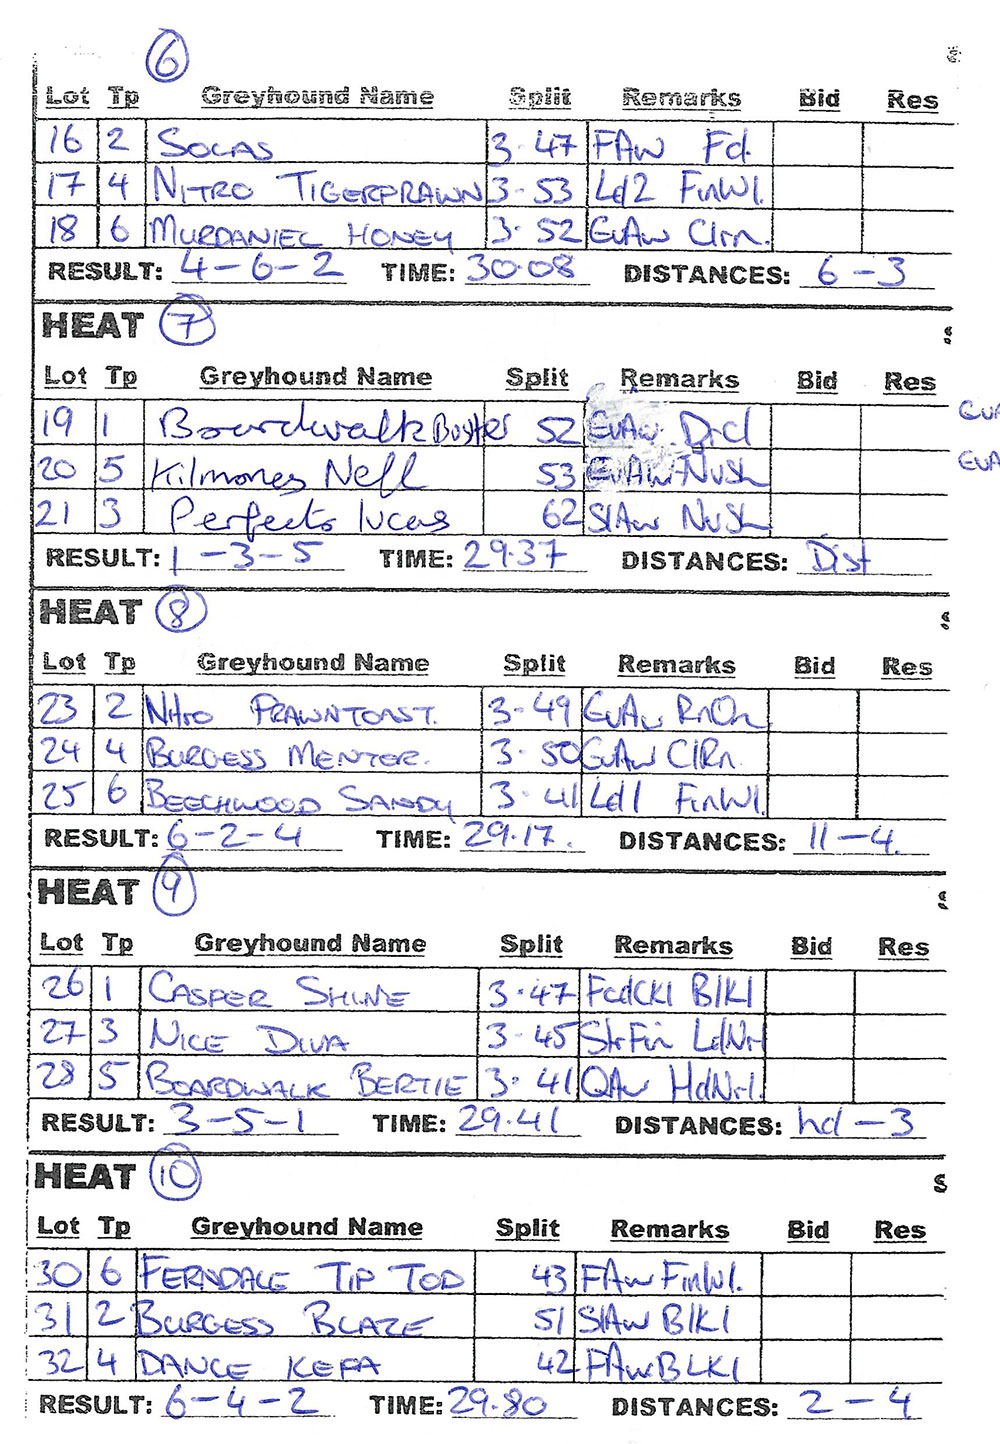 6
Lot Tp Greyhound Name Split Remarks Bid Res
16 2 SOLAS 3.47 FAw Fd.
17 4 NITRO TIGERPRAWN 3-53 Ld2 FinWl.
18 6 MURDANIEL HONEY 3.52 EvAw ClRn.
RESULT: 4-6-2 TIME: 30.08 DISTANCES: 6-3
HEAT 7
Lot Tp Greyhound Name Split Remarks Bid Res
19 1 Boardwalk Buster 52 EvAw Drcl
20 5 Kilmoney Nell 53 EvAw NvSh
21 3 Perfecto lucas 62 SlAw NvSh
RESULT: 1-3-5 TIME: 29.37 DISTANCES: Dist
HEAT 8
Lot Tp Greyhound Name Split Remarks Bid Res
23 2 Nitro PRAWNTOAST. 3-49 EvAw RnOn
24 4 BURGESS MENTOR. 3.50 EvAw ClRn.
25 6 BEECHWOOD SANDY 3.41 Ld1 FinWl.
RESULT: 6-2-4 TIME: 29.17. DISTANCES: 11-4.
HEAT 9
Lot Tp Greyhound Name Split Remarks Bid Res
26 1 CASPER SHINE 3.47 FcdCk1 Blk1
27 3 NICE DIVA 3.45 StrFin LdNrl
28 5 BOARDWALK BERTIE 3.41 QAw HdNrl.
RESULT: 3-5-1 TIME: 29.41 DISTANCES: hd-3
HEAT 10
Lot Tp Greyhound Name Split Remarks Bid Res
30 6 FERNDALE TIP TOD 43 FAw FinWl.
31 2 BURGESS BLAZE 51 SlAw Blk1
32 4 DANCE KEFA 42 FAw BLK1
RESULT: 6-4-2 TIME: 29.80 DISTANCES: 2-4